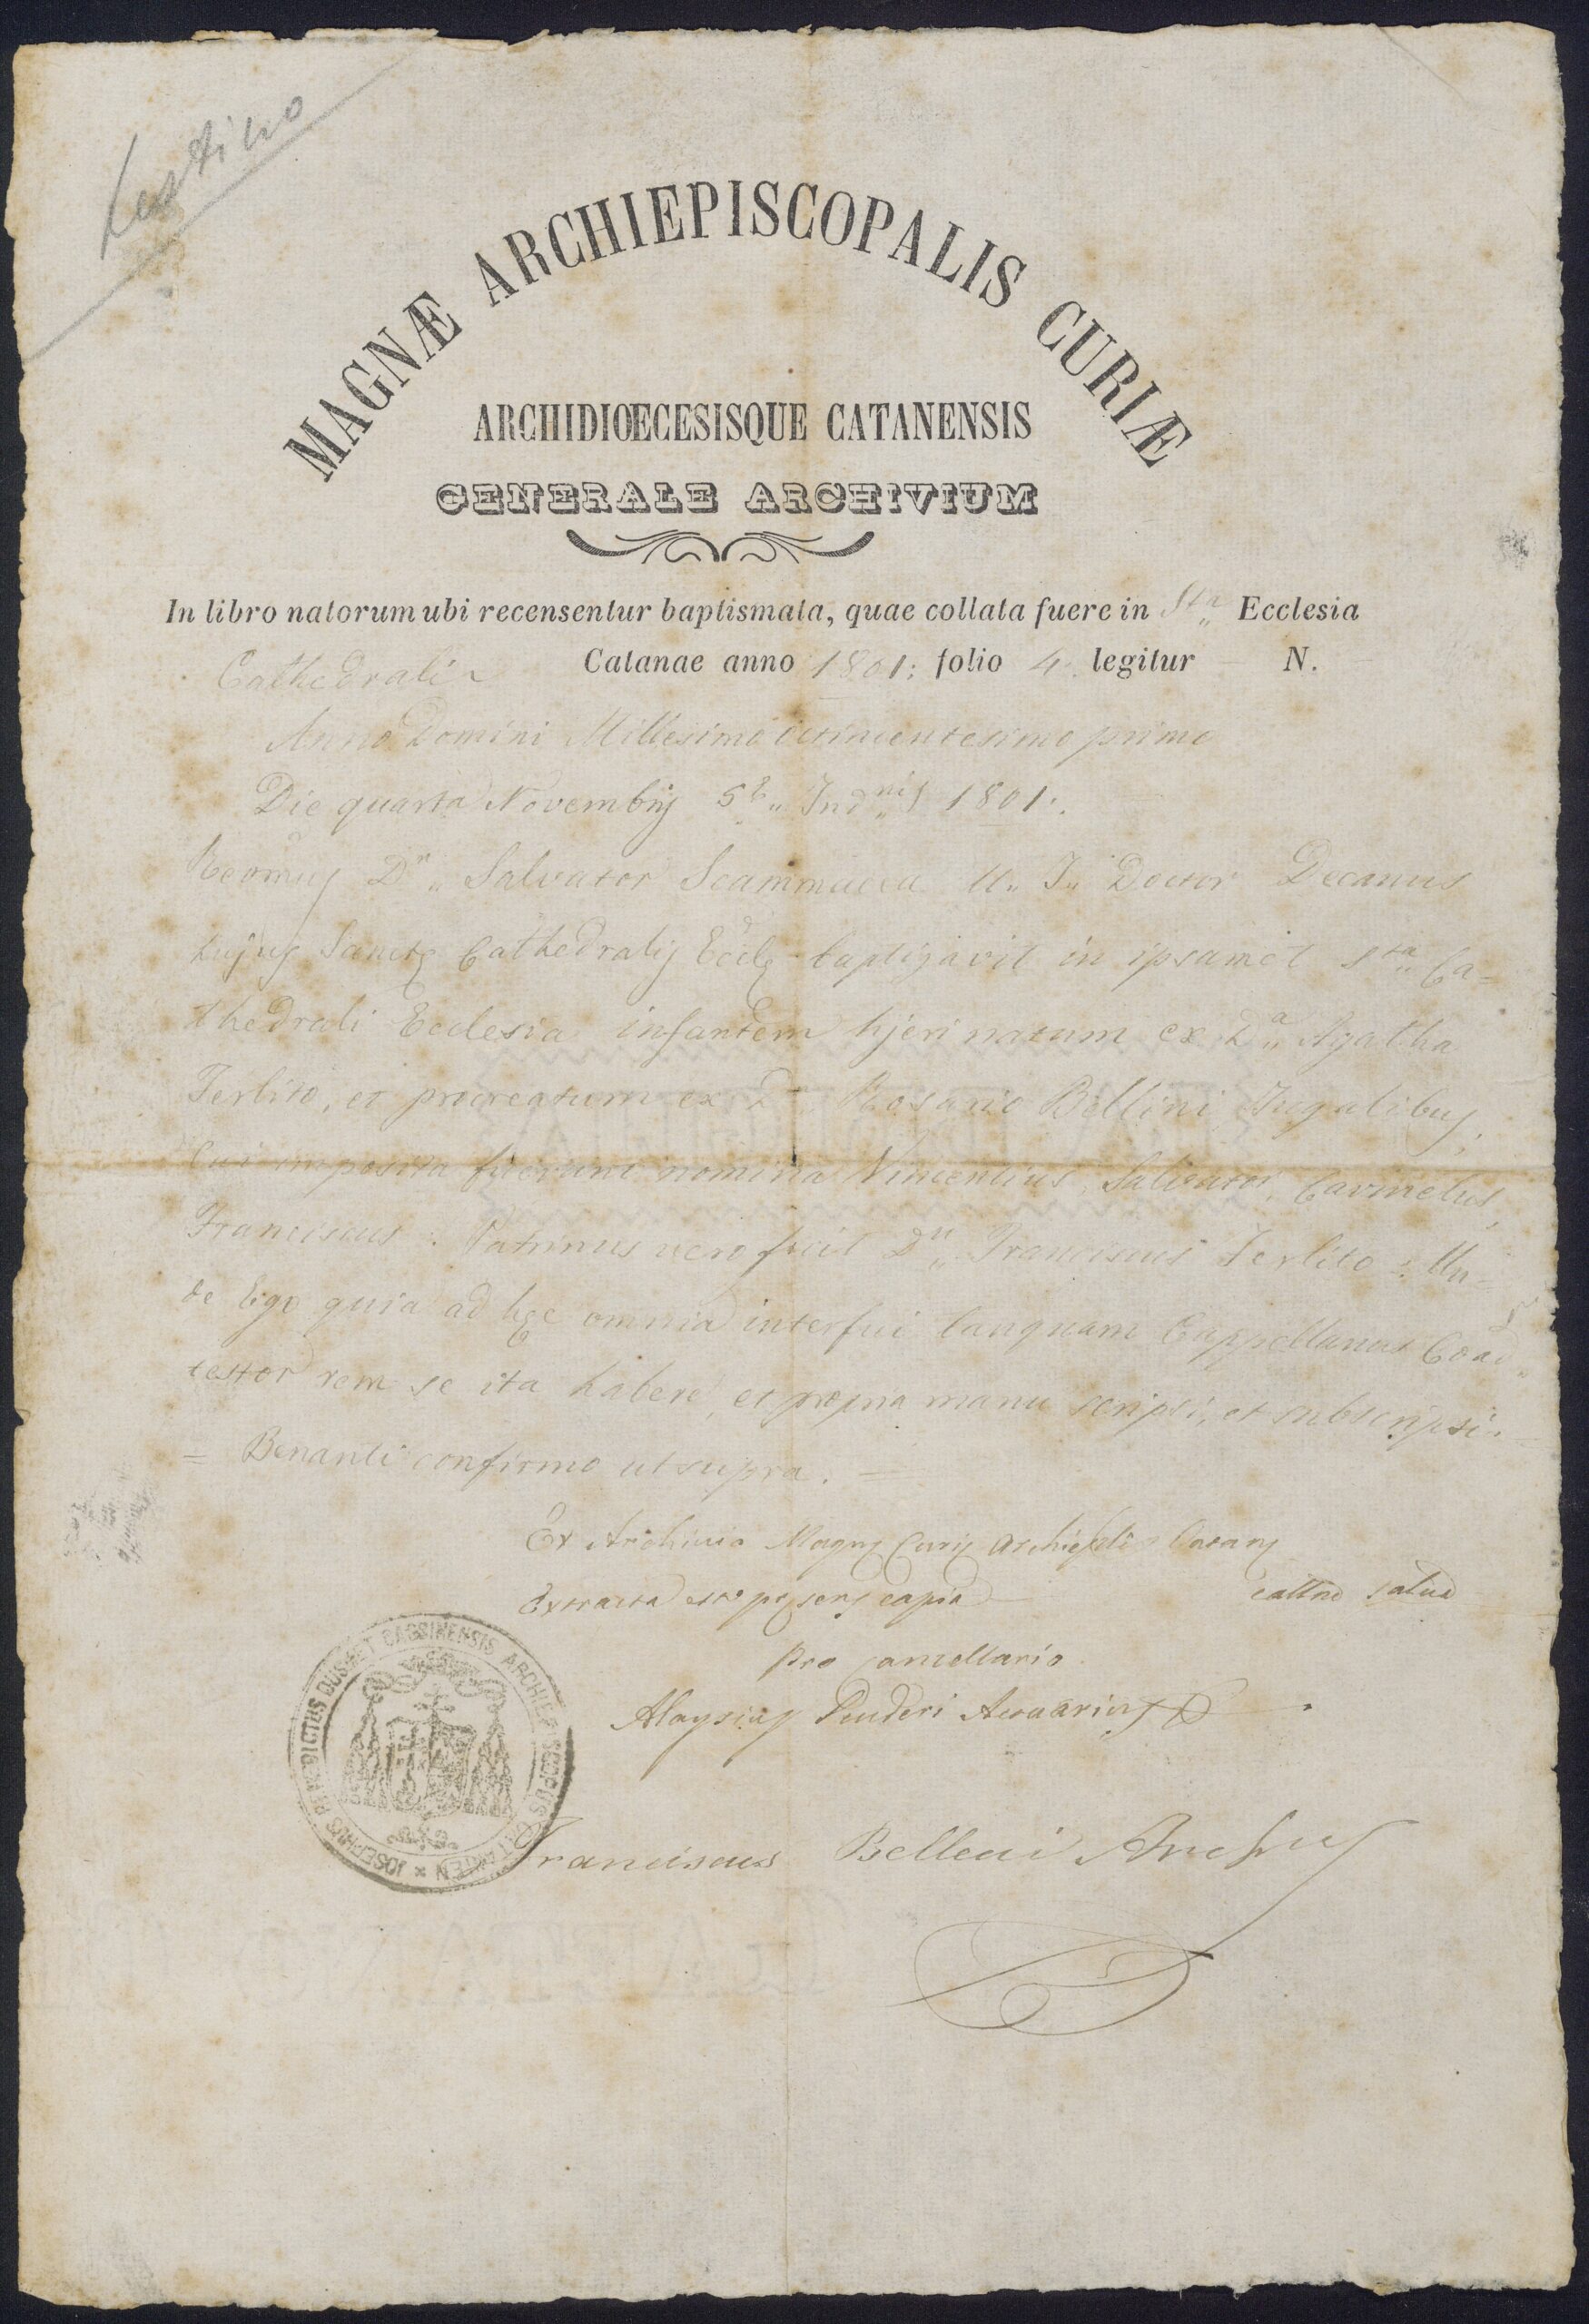 MAGNÆ ARCHIEPISCOPALIS CURIÆ
ARCHIDIŒCESISQUE CATANENSIS
GENERALE ARCHIVIUM
In libro natorum ubi recensentur baptismata, quae collata fuere in Sta Ecclesia
Cathedrali Catanae anno 1801: folio 4 legitur N.
Anno Domini Millesimo octincentesimo primo
Die quarta Novembris 5e Indnis 1801:
Revmus Dn Salvator Scammacca U. J. Doctor Decanus
hujus Sanctę Cathedralis Ecclę baptizavit in ipsamet Sta Ca=
thedrali Ecclesia infantem hjeri natum ex Da Agatha
Ferlito, et procreatum ex D. Rosario Bellini Jugalibus,
Cui imposita fuerunt nomina Vincentius, Salvator, Carmelus,
Franciscus: Patrinus vero fuit Dn Franciscus Ferlito: Un=
de Ego quia ad hęc omnia interfui tanquam Cappellanus Coad
testor rem se ita habere, et propria manu scripsi, et subscripsi.
= Benanti confirmo ut supra. =
Ex Archivio Magnę Curię Archieplis Catanę
Extracta est pręsens copia salva
Pro Cancellario
Aloysius Actuarius
Franciscus
JOSEPHUS BENEDICTUS DUSMET CASSINENSIS ARCHIEPISCOPUS CATANEN